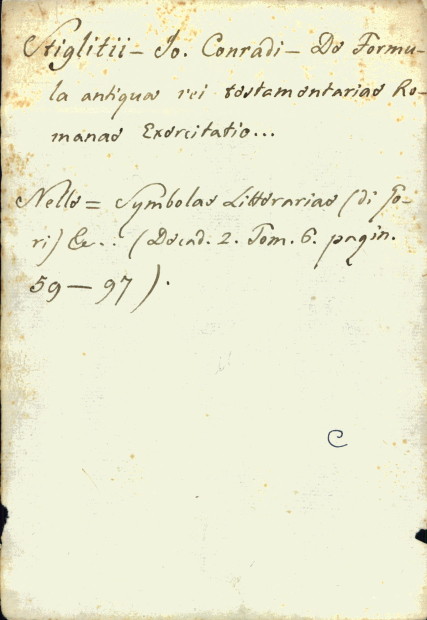 Stiglitii - Jo. Conradi - De Formu-
la antiquae rei testamentariae Ro-
manae Exercitatio...
Nelle = Symbolae Litterariae (di Go-
ri) &c.. (Decad. 2. Tom. 6. pagin.
59 - 97).
C